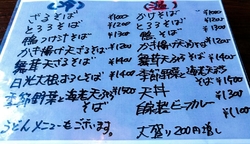 (冷)
ざるそば ¥1000
とろろそば ¥1200
鴨つけそば ¥1300
かき揚げ天ざるそば ¥1200
舞茸天ざるそば ¥1400
日光大根おろしそば ¥1400
季節野菜と海老天ざるそば ¥1500
うどんメニューもございます。
(温)
かけそば ¥1000
とろろそば ¥1200
鴨そば
かき揚げ天ぷらそば
舞茸天ぷらそば
季節野菜と海老天ぷらそば
天丼
自家製ビーフカレー ¥1100
大盛り200円増し